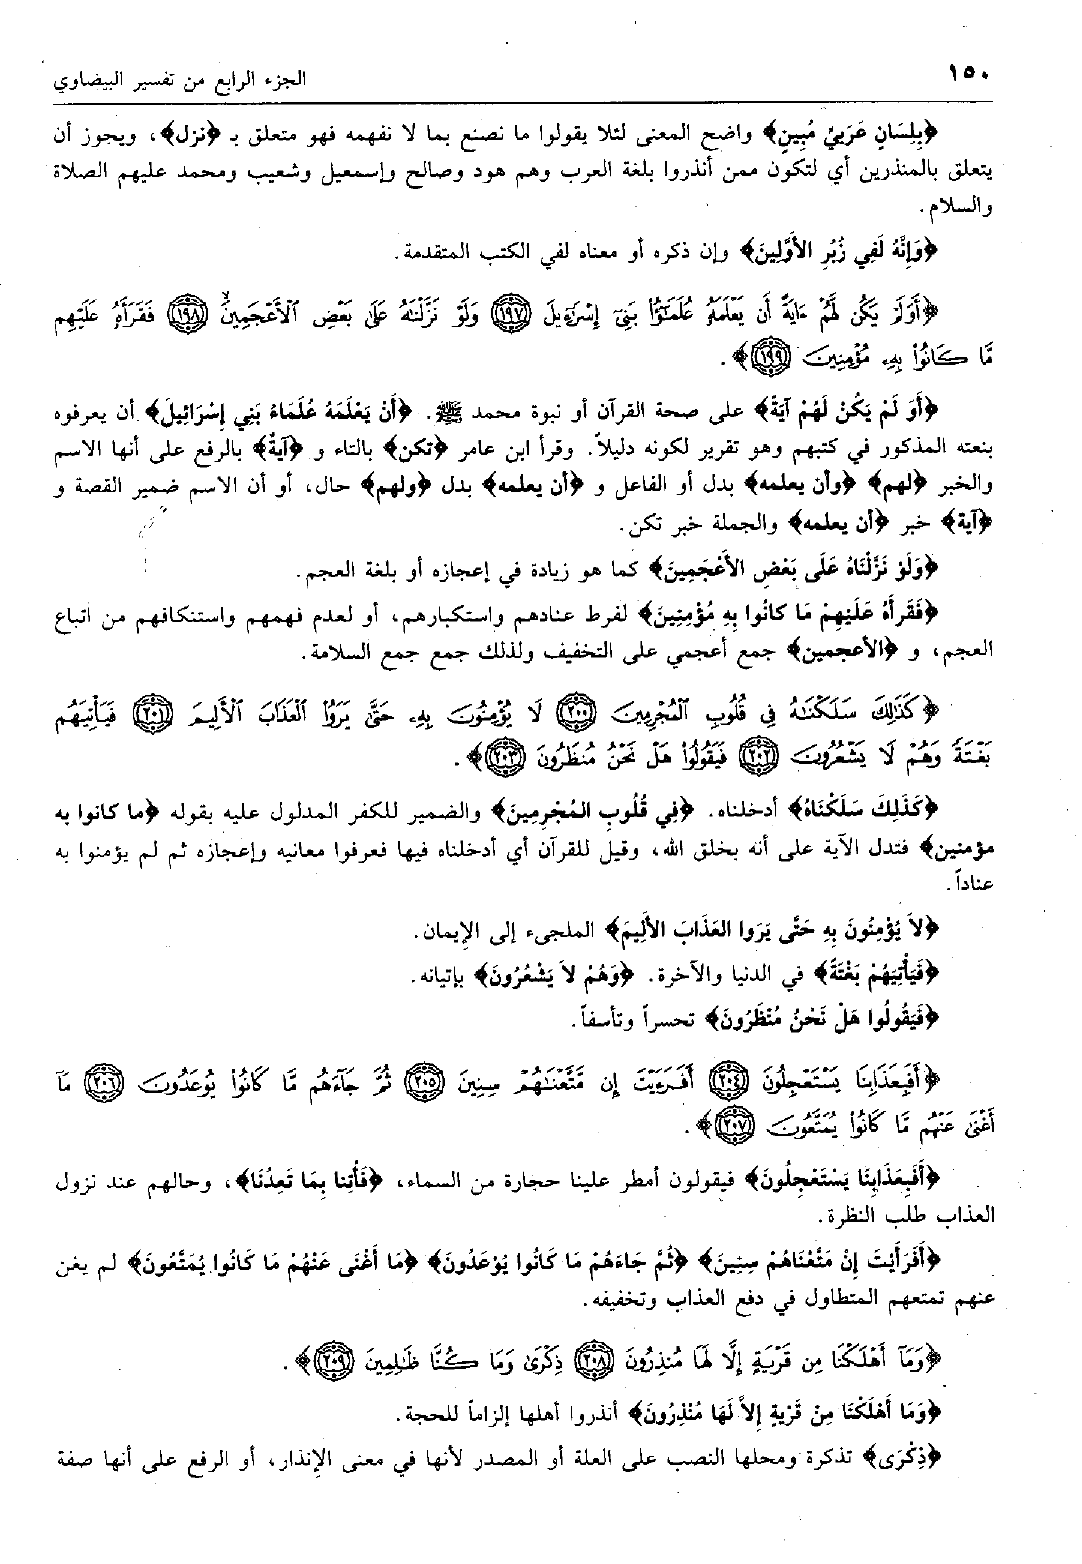 ١٥٠
الجزء الرابع من تفسير البيضاوي
﴿بِلِسَانٍ عَرَبِيٍّ مُبِينٍ﴾ واضح المعنى لئلا يقولوا ما نصنع بما لا نفهمه فهو متعلق بـ ﴿نزل﴾، ويجوز أن
يتعلق بالمنذرين أي لتكون ممن أنذروا بلغة العرب وهم هود وصالح وإسمعيل وشعيب ومحمد عليهم الصلاة
والسلام.
﴿وَإِنَّهُ لَفِي زُبُرِ الأَوَّلِينَ﴾ وإن ذكره أو معناه لفي الكتب المتقدمة.
﴿أَوَلَمْ يَكُن لَّهُمْ ءَايَةً أَن يَعْلَمَهُۥ عُلَمَٰٓؤُا۟ بَنِىٓ إِسْرَٰٓءِيلَ ١٩٧ وَلَوْ نَزَّلْنَٰهُ عَلَىٰ بَعْضِ ٱلْأَعْجَمِينَ ١٩٨ فَقَرَأَهُۥ عَلَيْهِم
مَّا كَانُوا۟ بِهِۦ مُؤْمِنِينَ ١٩٩﴾.
﴿أَوَ لَمْ يَكُنْ لَهُمْ آيَةً﴾ على صحة القرآن أو نبوة محمد ﷺ. ﴿أَنْ يَعْلَمَهُ عُلَمَاءُ بَنِي إِسْرَائِيلَ﴾ أن يعرفوه
بنعته المذكور في كتبهم وهو تقرير لكونه دليلاً. وقرأ ابن عامر ﴿تكن﴾ بالتاء و ﴿آيةٌ﴾ بالرفع على أنها الاسم
والخبر ﴿لهم﴾ ﴿وأن يعلمه﴾ بدل أو الفاعل و ﴿أن يعلمه﴾ بدل ﴿ولهم﴾ حال، أو أن الاسم ضمير القصة و
﴿آية﴾ خبر ﴿أن يعلمه﴾ والجملة خبر تكن.
﴿وَلَوْ نَزَّلْنَاهُ عَلَى بَعْضِ الأَعْجَمِينَ﴾ كما هو زيادة في إعجازه أو بلغة العجم.
﴿فَقَرَأَهُ عَلَيْهِمْ مَا كَانُوا بِهِ مُؤْمِنِينَ﴾ لفرط عنادهم واستكبارهم، أو لعدم فهمهم واستنكافهم من اتباع
العجم، و ﴿الأعجمين﴾ جمع أعجمي على التخفيف ولذلك جمع جمع السلامة.
﴿كَذَٰلِكَ سَلَكْنَٰهُ فِى قُلُوبِ ٱلْمُجْرِمِينَ ٢٠٠ لَا يُؤْمِنُونَ بِهِۦ حَتَّىٰ يَرَوُا۟ ٱلْعَذَابَ ٱلْأَلِيمَ ٢٠١ فَيَأْتِيَهُم
بَغْتَةً وَهُمْ لَا يَشْعُرُونَ ٢٠٢ فَيَقُولُوا۟ هَلْ نَحْنُ مُنظَرُونَ ٢٠٣﴾.
﴿كَذَلِكَ سَلَكْنَاهُ﴾ أدخلناه. ﴿فِي قُلُوبِ المُجْرِمِينَ﴾ والضمير للكفر المدلول عليه بقوله ﴿ما كانوا به
مؤمنين﴾ فتدل الآية على أنه بخلق الله، وقيل للقرآن أي أدخلناه فيها فعرفوا معانيه وإعجازه ثم لم يؤمنوا به
عناداً.
﴿لاَ يُؤْمِنُونَ بِهِ حَتَّى يَرَوا العَذَابَ الأَلِيمَ﴾ الملجىء إلى الإيمان.
﴿فَيَأْتِيَهُمْ بَغْتَةً﴾ في الدنيا والآخرة. ﴿وَهُمْ لاَ يَشْعُرُونَ﴾ بإتيانه.
﴿فَيَقُولُوا هَلْ نَحْنُ مُنْظَرُونَ﴾ تحسراً وتأسفاً.
﴿أَفَبِعَذَابِنَا يَسْتَعْجِلُونَ ٢٠٤ أَفَرَءَيْتَ إِن مَّتَّعْنَٰهُمْ سِنِينَ ٢٠٥ ثُمَّ جَآءَهُم مَّا كَانُوا۟ يُوعَدُونَ ٢٠٦ مَآ
أَغْنَىٰ عَنْهُم مَّا كَانُوا۟ يُمَتَّعُونَ ٢٠٧﴾.
﴿أَفَبِعَذَابِنَا يَسْتَعْجِلُونَ﴾ فيقولون أمطر علينا حجارة من السماء، ﴿فَأْتِنا بِمَا تَعِدُنَا﴾، وحالهم عند نزول
العذاب طلب النظرة.
﴿أَفَرَأَيْتَ إِنْ مَتَّعْنَاهُمْ سِنِينَ﴾ ﴿ثُمَّ جَاءَهُمْ مَا كَانُوا يُوْعَدُونَ﴾ ﴿مَا أَغْنَى عَنْهُمْ مَا كَانُوا يُمَتَّعُونَ﴾ لم يغن
عنهم تمتعهم المتطاول في دفع العذاب وتخفيفه.
﴿وَمَآ أَهْلَكْنَا مِن قَرْيَةٍ إِلَّا لَهَا مُنذِرُونَ ٢٠٨ ذِكْرَىٰ وَمَا كُنَّا ظَٰلِمِينَ ٢٠٩﴾.
﴿وَمَا أَهْلَكْنَا مِنْ قَرْيَةٍ إِلاَّ لَهَا مُنْذِرُونَ﴾ أنذروا أهلها إلزاماً للحجة.
﴿ذِكْرَى﴾ تذكرة ومحلها النصب على العلة أو المصدر لأنها في معنى الإنذار، أو الرفع على أنها صفة